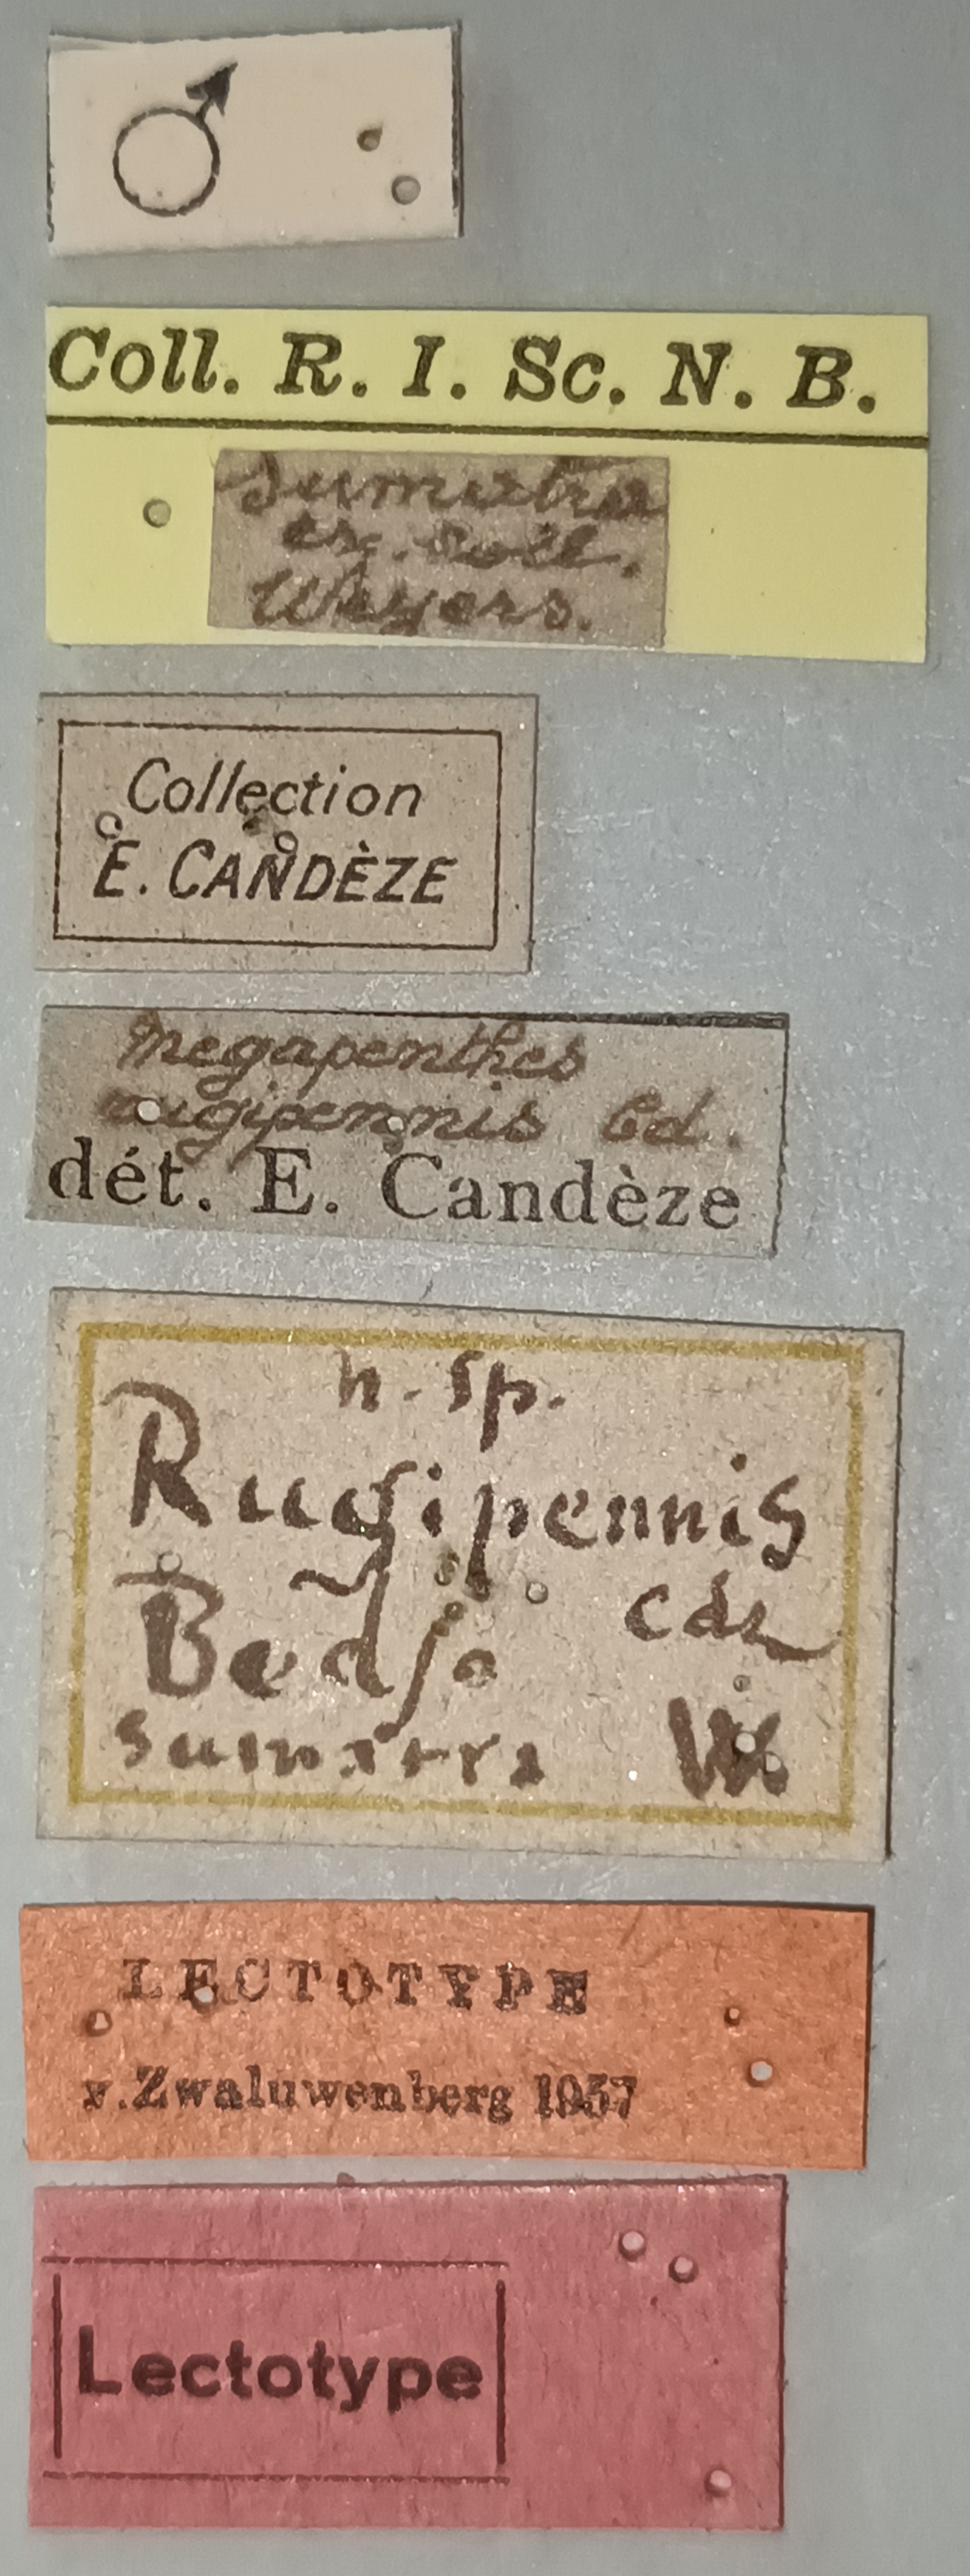 ♂
Coll. R. I. Sc. N. B.
Sumatra
ex. coll.
Weyers.
Collection
E. CANDÈZE
Megapenthes
rugipennis Cd.
dét. E. Candèze
n. sp.
Rugipennis
Cdz
Bedjo
Sumatra W.
LECTOTYPE
v.Zwaluwenberg 1957
Lectotype